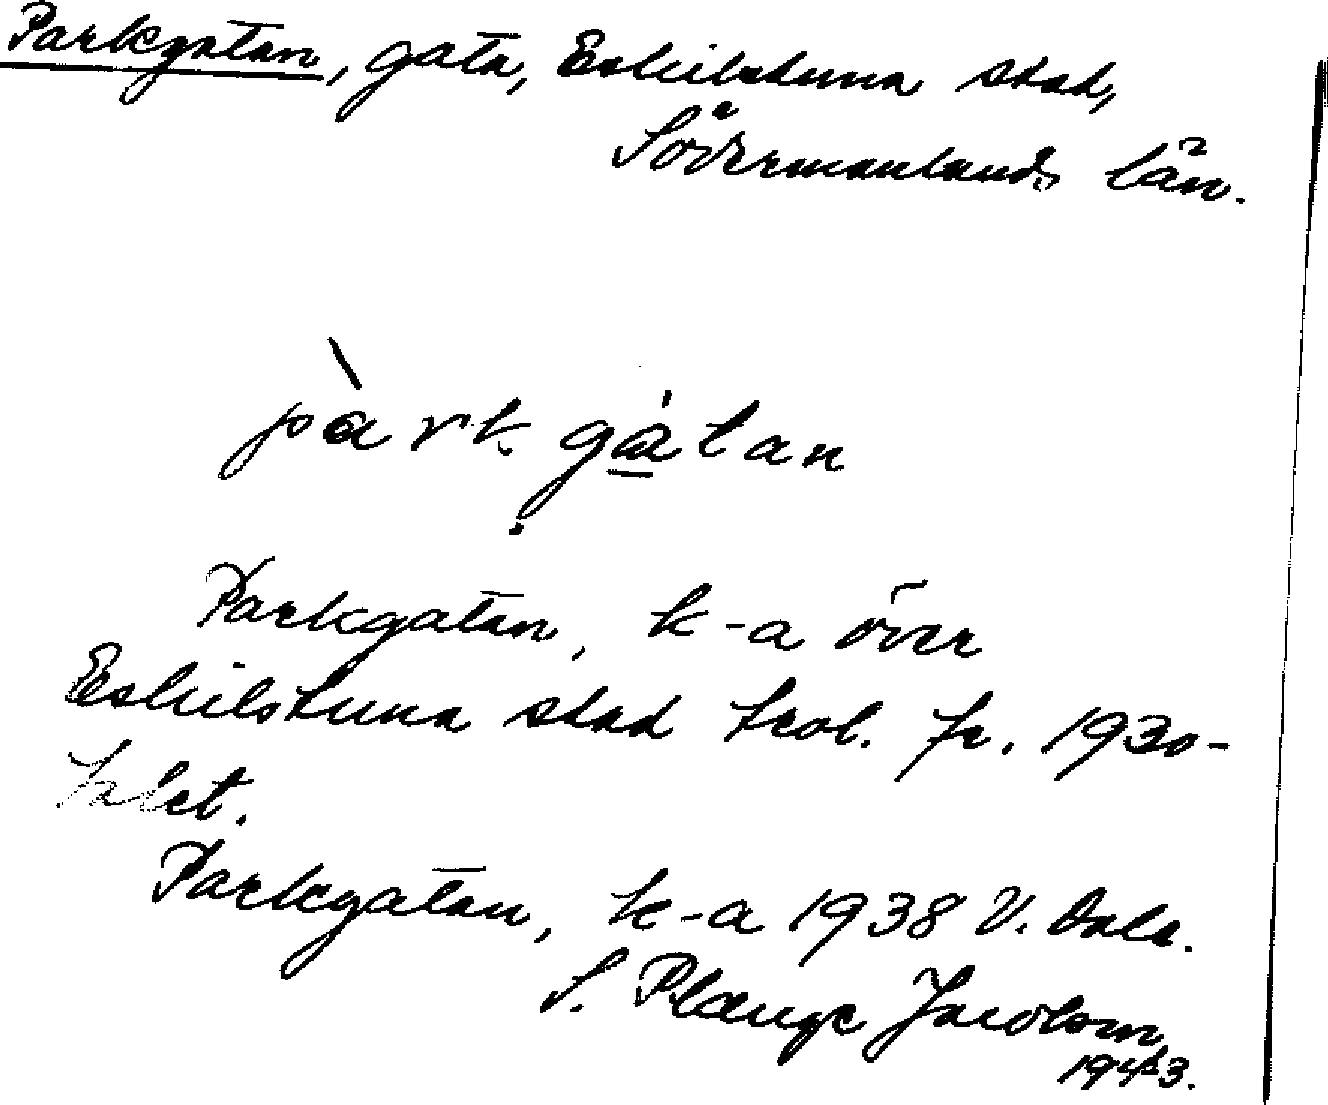 Parkgatan, gata, Eskilstuna stad,
Södermanlands län.
pàrkgátan
Parkgatan, k-a över
Eskilstuna stad trol. fr. 1930-
talet.
Parkgatan, k-a 1938 V. Dala.
S. Plænge Jacobson
1943.